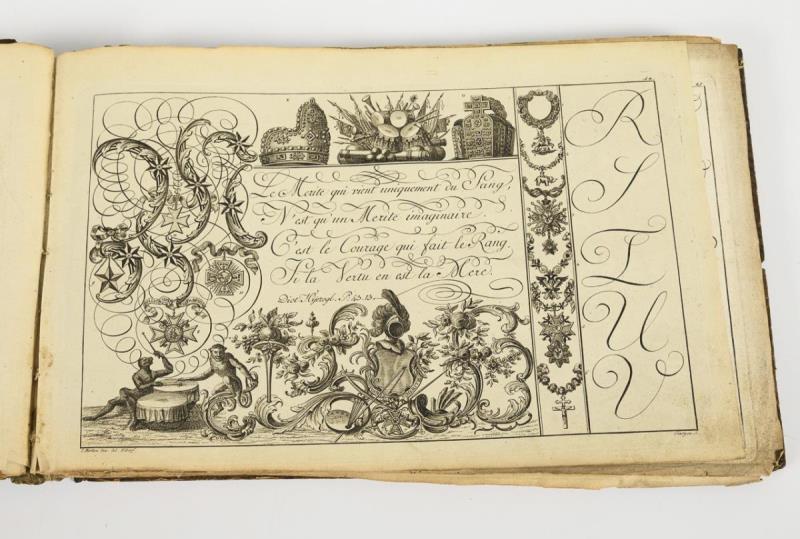 Le Merite qui vient uniquement du Sang,
N'est qu'un Merite imaginaire.
C'est le Courage qui fait le Rang,
Si la Vertu en est la Mere.
Dict. Hyerogl. P. 43. 13.
R
S
T
U
V